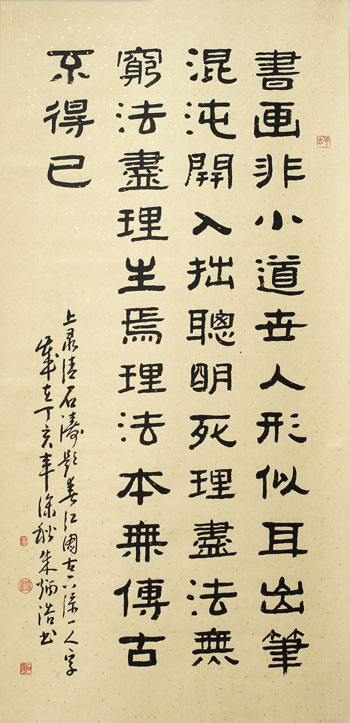 書画非小道世人形似耳出筆
混沌開入拙聰明死理盡法無
窮法盡理生焉理法本無傳古
不得已
上录清石濤題春江圖古下添一人字
歲在丁亥年深秋朱炳浩书